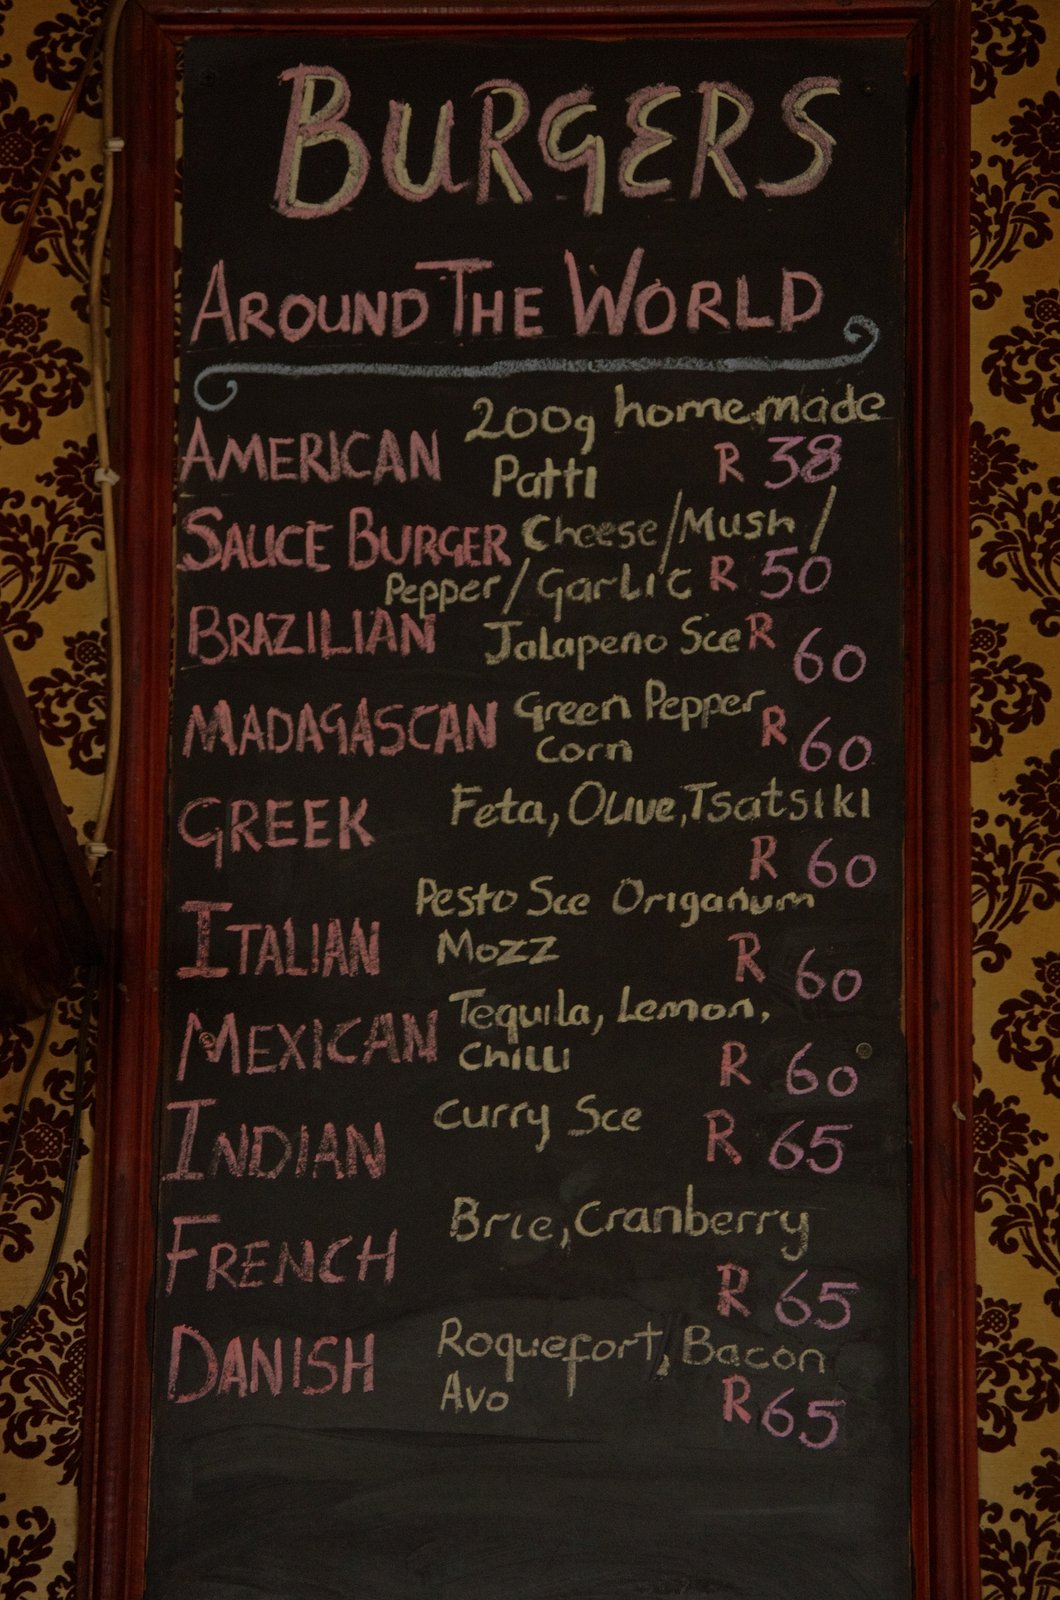 BURGERS
AROUND THE WORLD
AMERICAN 200g homemade
Patti R 38
SAUCE BURGER Cheese/Mush/
Pepper/Garlic R 50
BRAZILIAN Jalapeno Sce R 60
MADAGASCAN Green Pepper
Corn R 60
GREEK Feta, Olive, Tsatsiki
R 60
ITALIAN Pesto Sce Origanum
Mozz R 60
MEXICAN Tequila, Lemon,
Chilli R 60
INDIAN Curry Sce R 65
FRENCH Brie, Cranberry
R 65
DANISH Roquefort, Bacon
Avo R 65